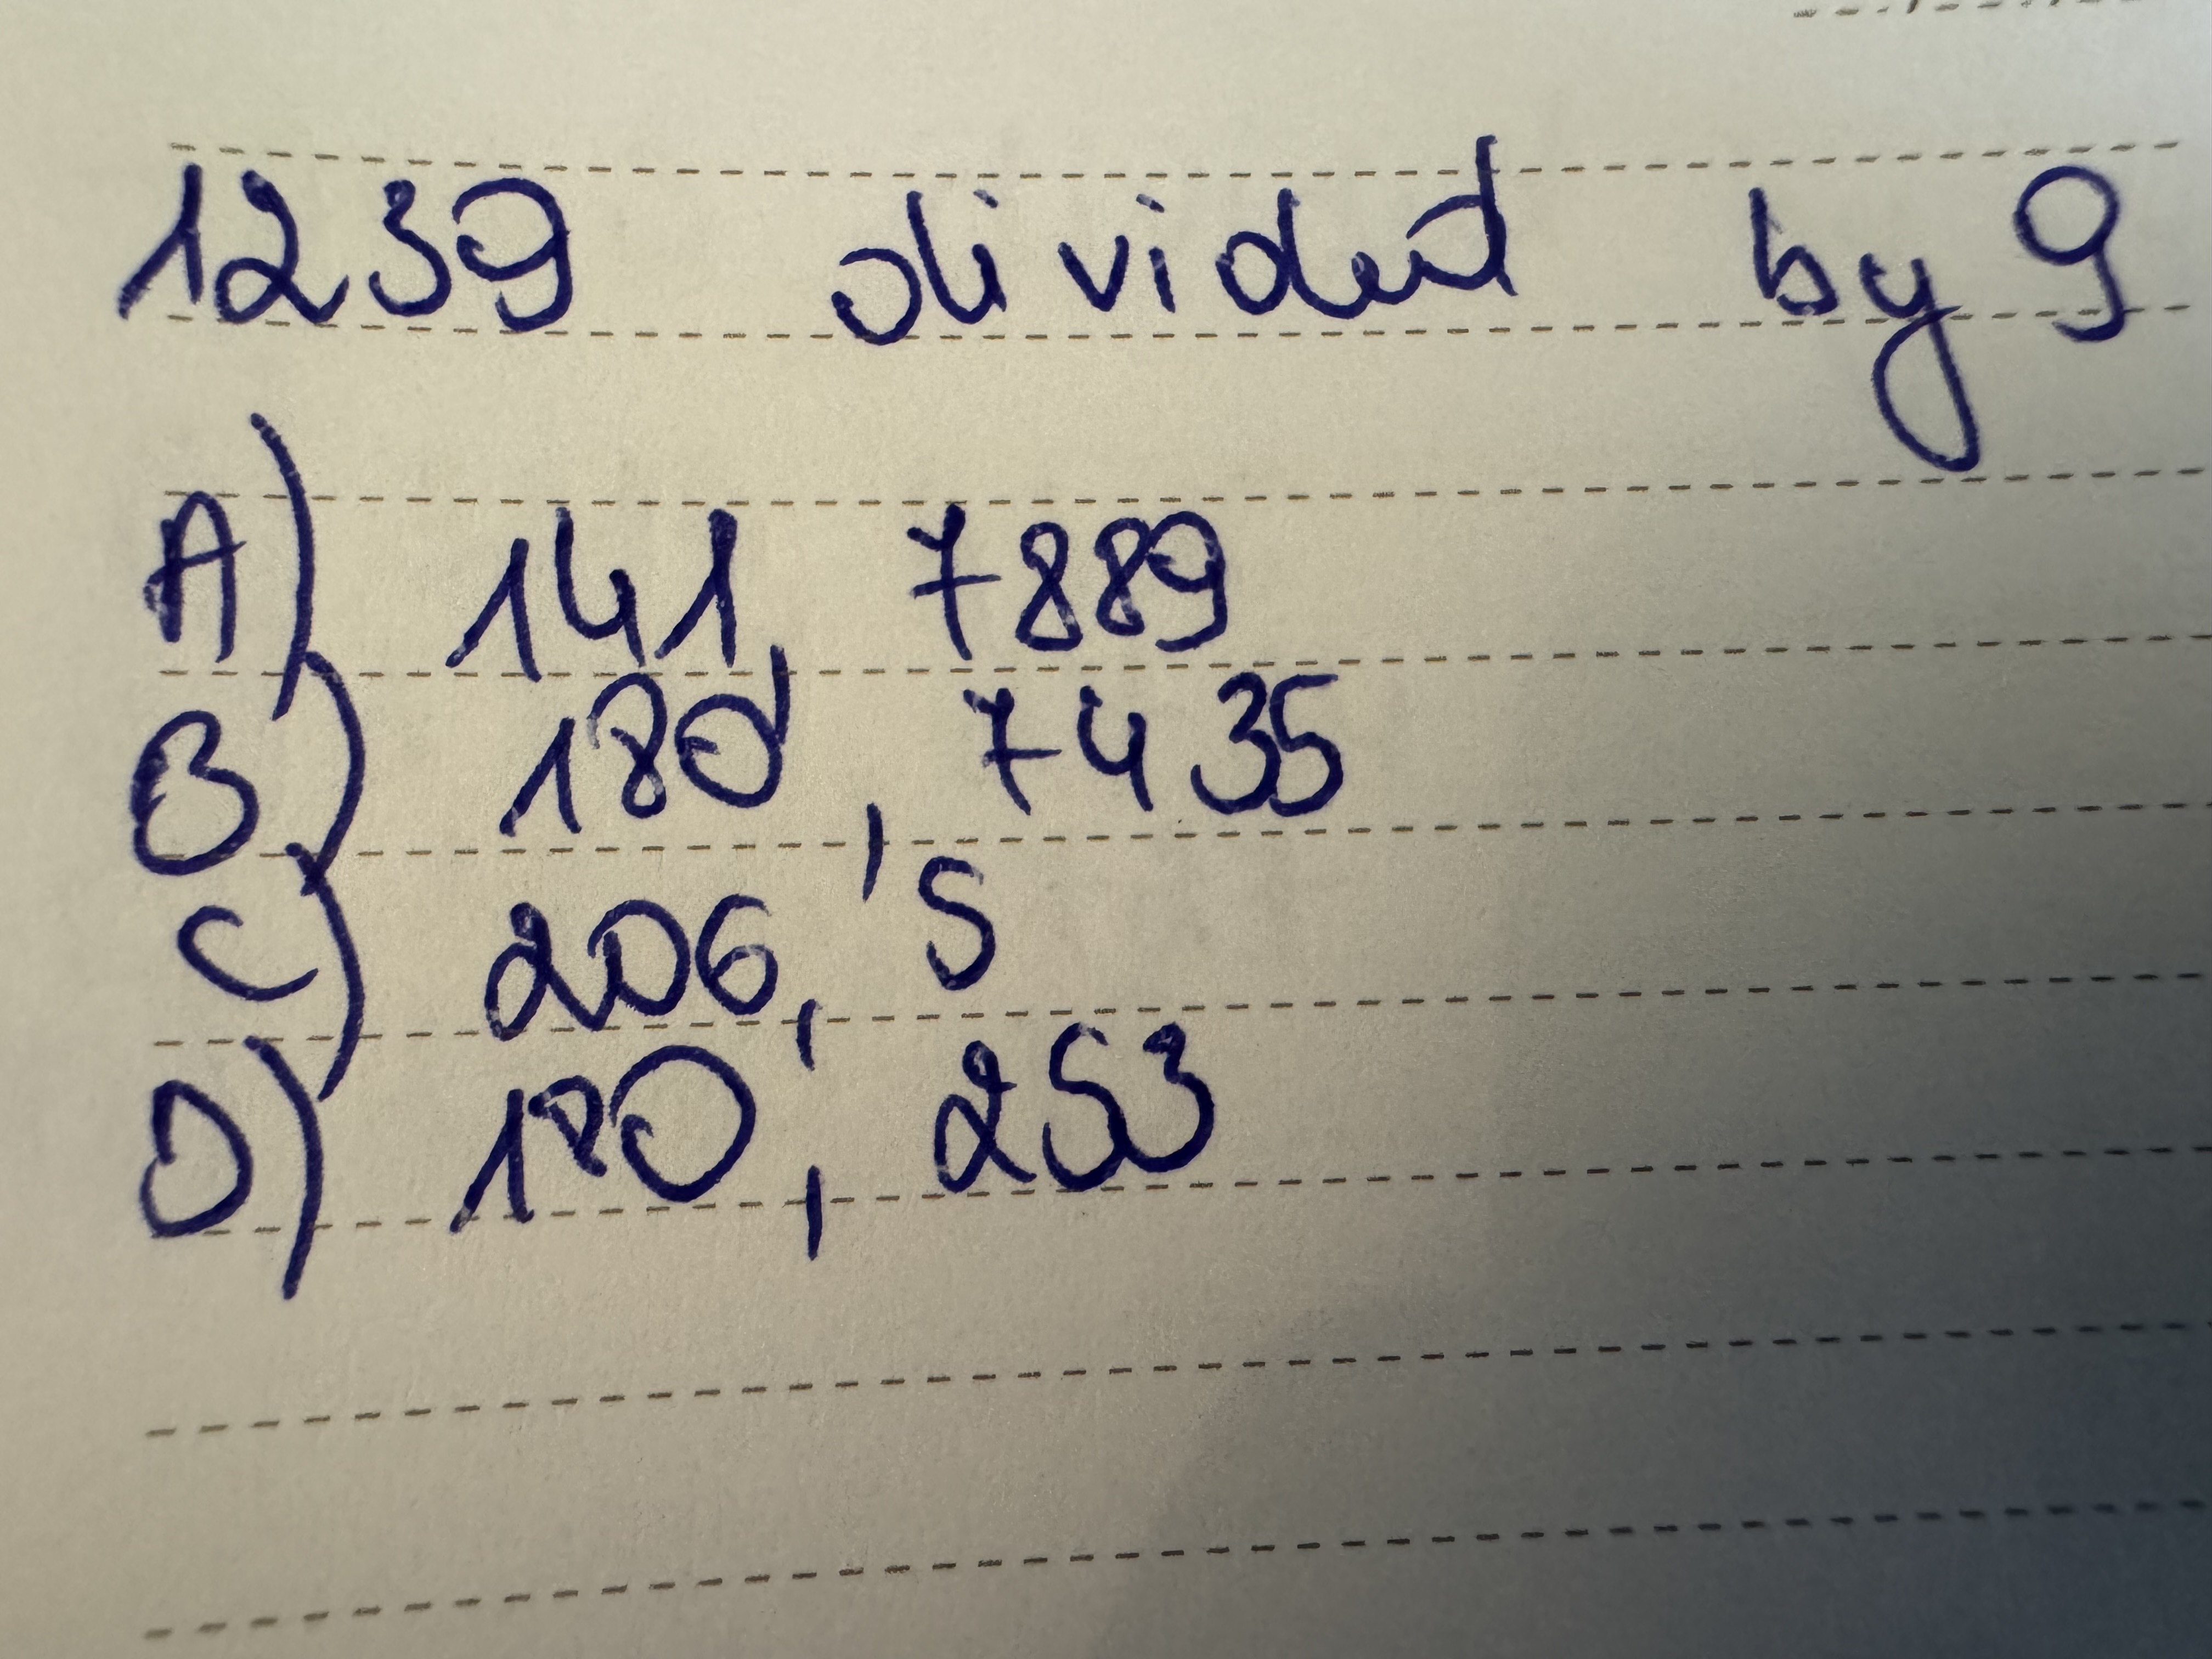 1239 divided by 9
A) 141, 7889
B) 180, 7435
C) 206, 5
D) 180, 253